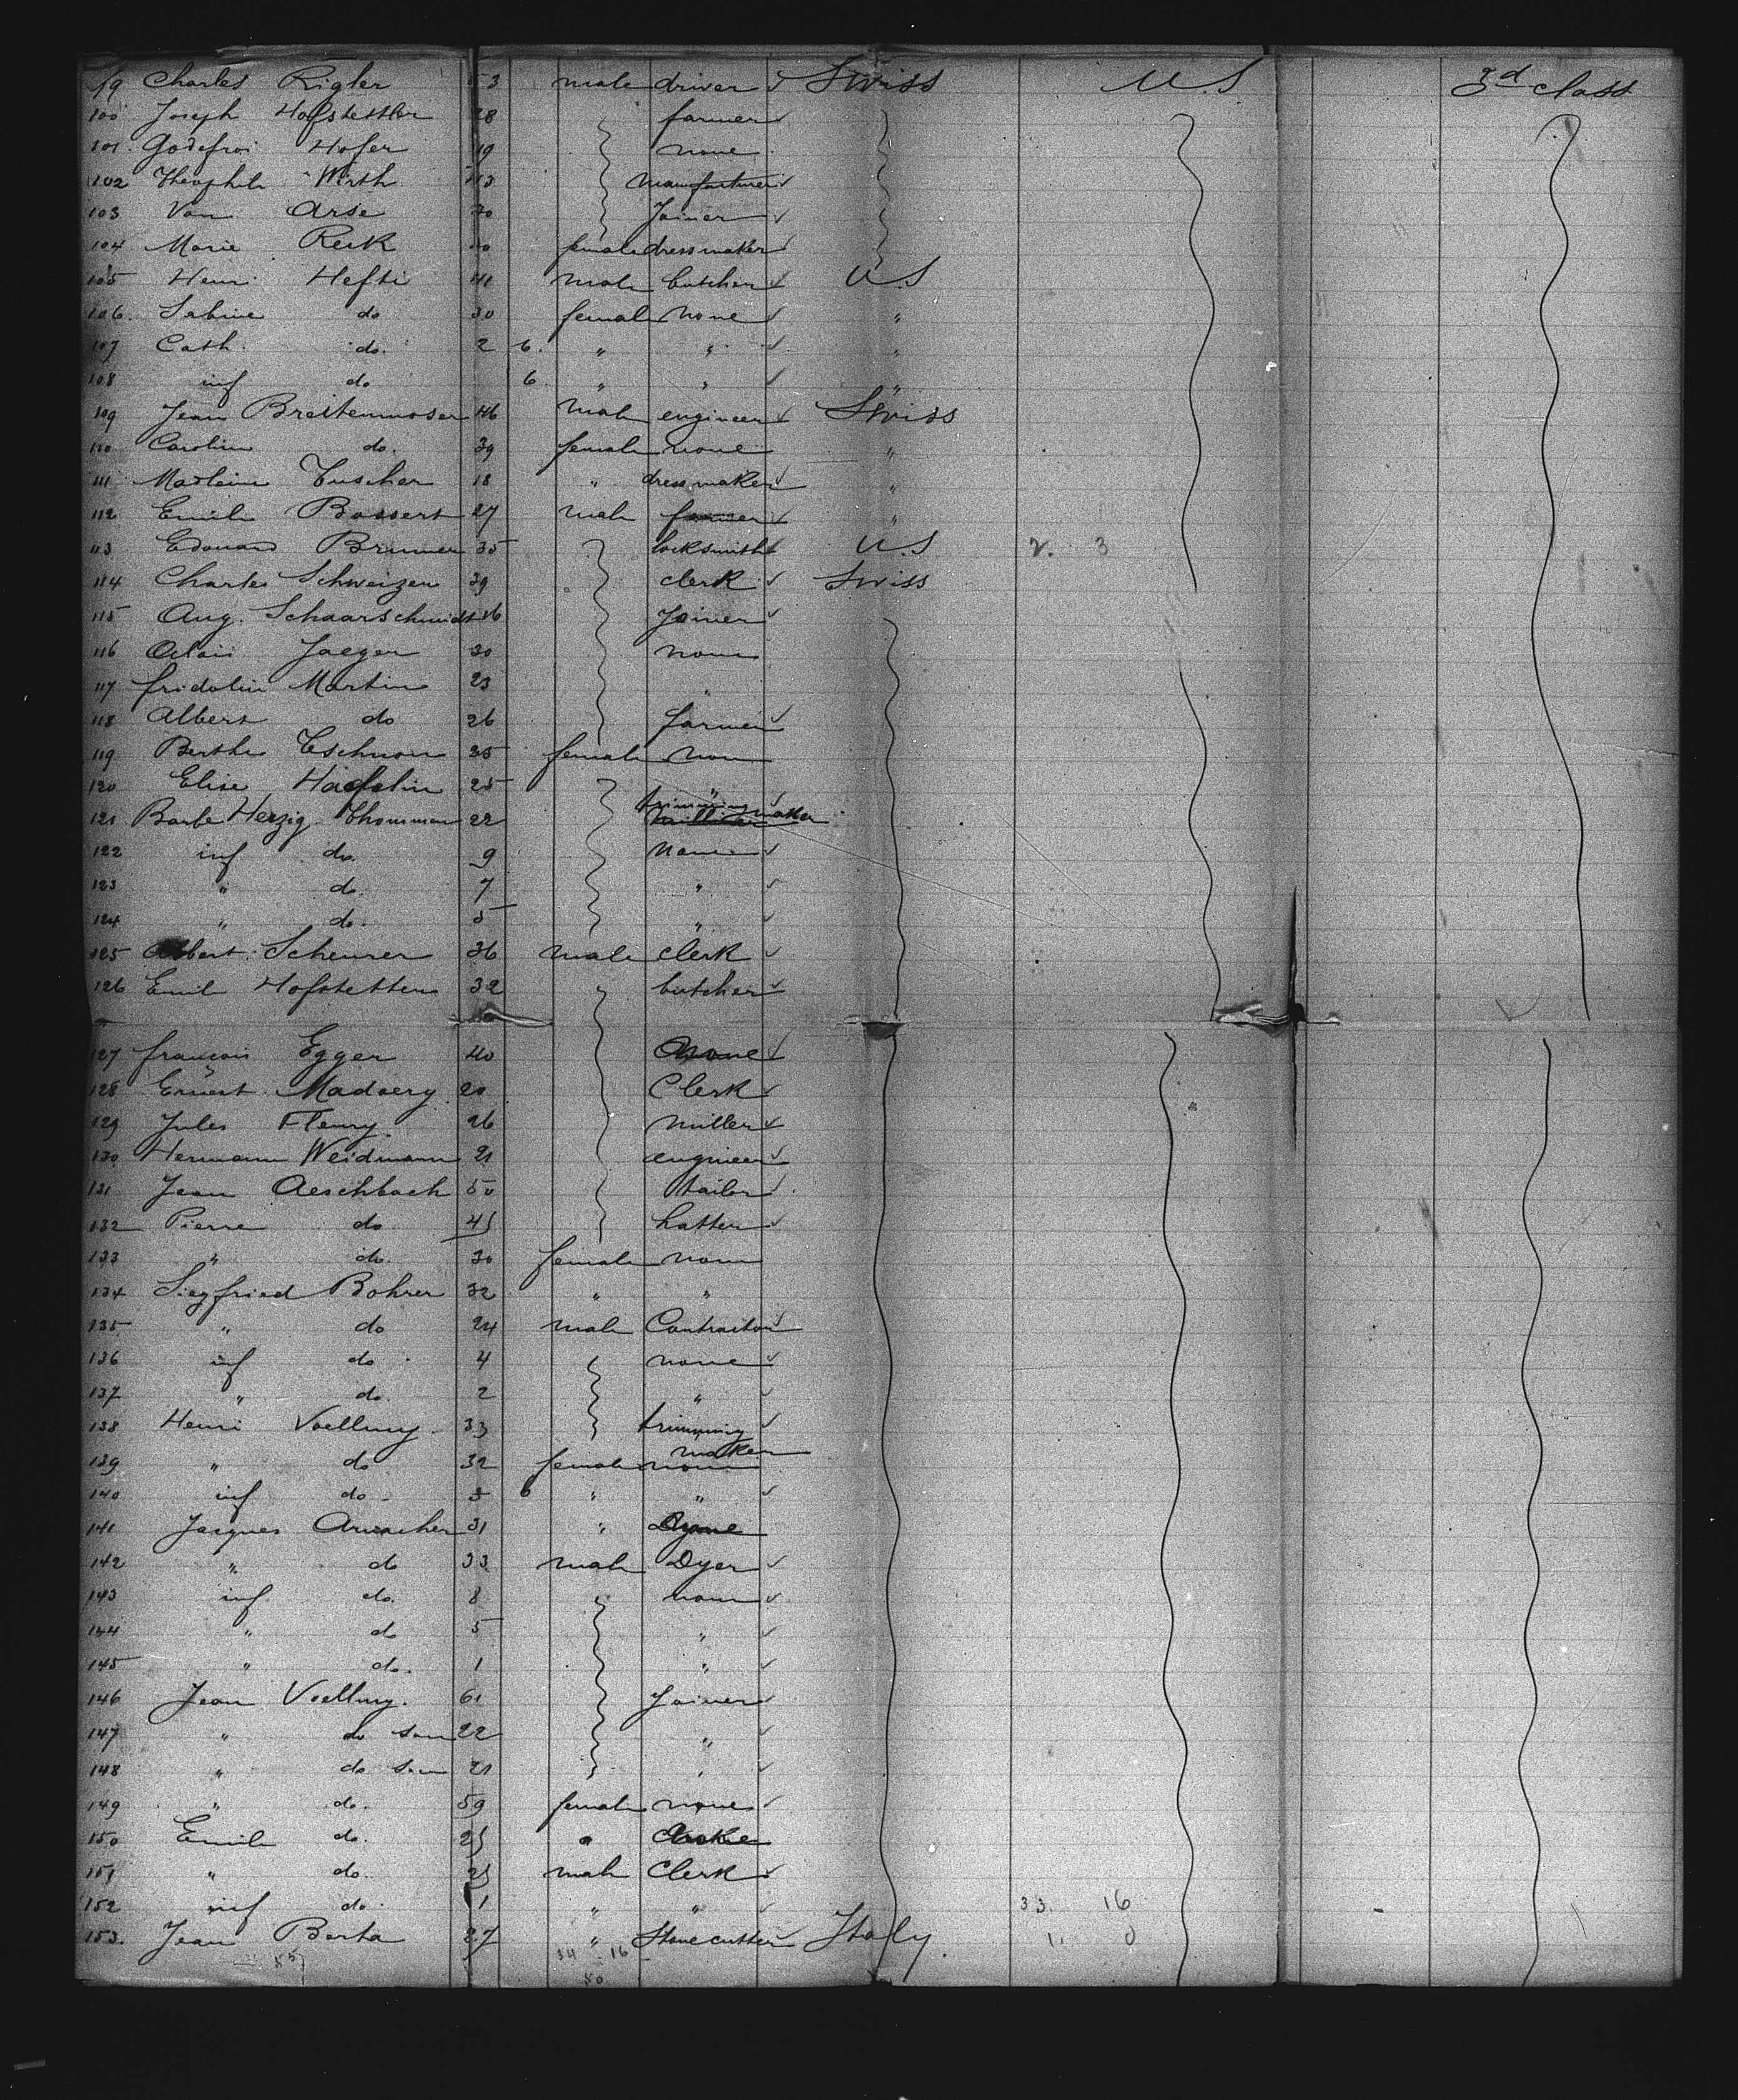 99 Charles Rigler 53 male driver Swiss U.S 3d class
100 Joseph Hofstettler 28 farmer
101 Godefroi Hofer 19 none
102 Theophile Wirth manufacturer
103 Van Arse Joiner
104 Marie Reck female dressmaker
105 Henri Hefti 41 male butcher U.S
106 Sabine do 30 female none "
107 Cath. do. 2 6. " " "
108 inf do 6 " " "
109 Jean Breitenmoser 46 male engineer Swiss
110 Caroline do. 39 female none "
111 Madleine Tuscher 18 " dressmaker "
112 Emile Bossert 27 male farmer "
113 Edouard Brunner 35 locksmith U.S 2. 3
114 Charles Schweizer 39 clerk Swiss
115 Aug. Schaarschmidt 16 Joiner
116 Jaeger 30 none
117 fridolin Martin 23 "
118 Albert do 26 farmer
119 Berthe Tschumi 25 female none
120 Elise Haefelin 25 "
121 Barbe Herzig Thommen 22 trimming maker
122 inf do. 9 none
123 " do. 7 "
124 " do. 5 "
125 Albert Scheurer 36 male clerk
126 Emile Hofstetter 32 butcher
127 françois Egger 40 none
128 Ernest Madoery 20 Clerk
129 Jules Fleury 26 miller
130 Hermann Weidmann 21 engineer
131 Jean Aeschbach 50 tailor
132 Pierre do 45 hatter
133 " do. 30 female none
134 Siegfried Bohrer 32 " "
135 " do 24 male Contractor
136 inf do 4 none
137 " do. 2 "
138 Henri Voellmy 33 trimming maker
139 " do 32 female none
140 inf do 3 6 " "
141 Jacques 31 "
142 " do 33 male Dyer
143 inf do. 8 none
144 " do 5 "
145 " do. 1 "
146 Jean Voellmy. 61 Joiner
147 " do son 22 "
148 " do son 21 "
149 " do. 59 female none
150 Emile do. 25 "
151 " do. 25 male Clerk
152 inf do. 1 " " 33. 16
153. Jean Berta 27 " Stonecutter Italy. 1. 0
55 34 - 16
50